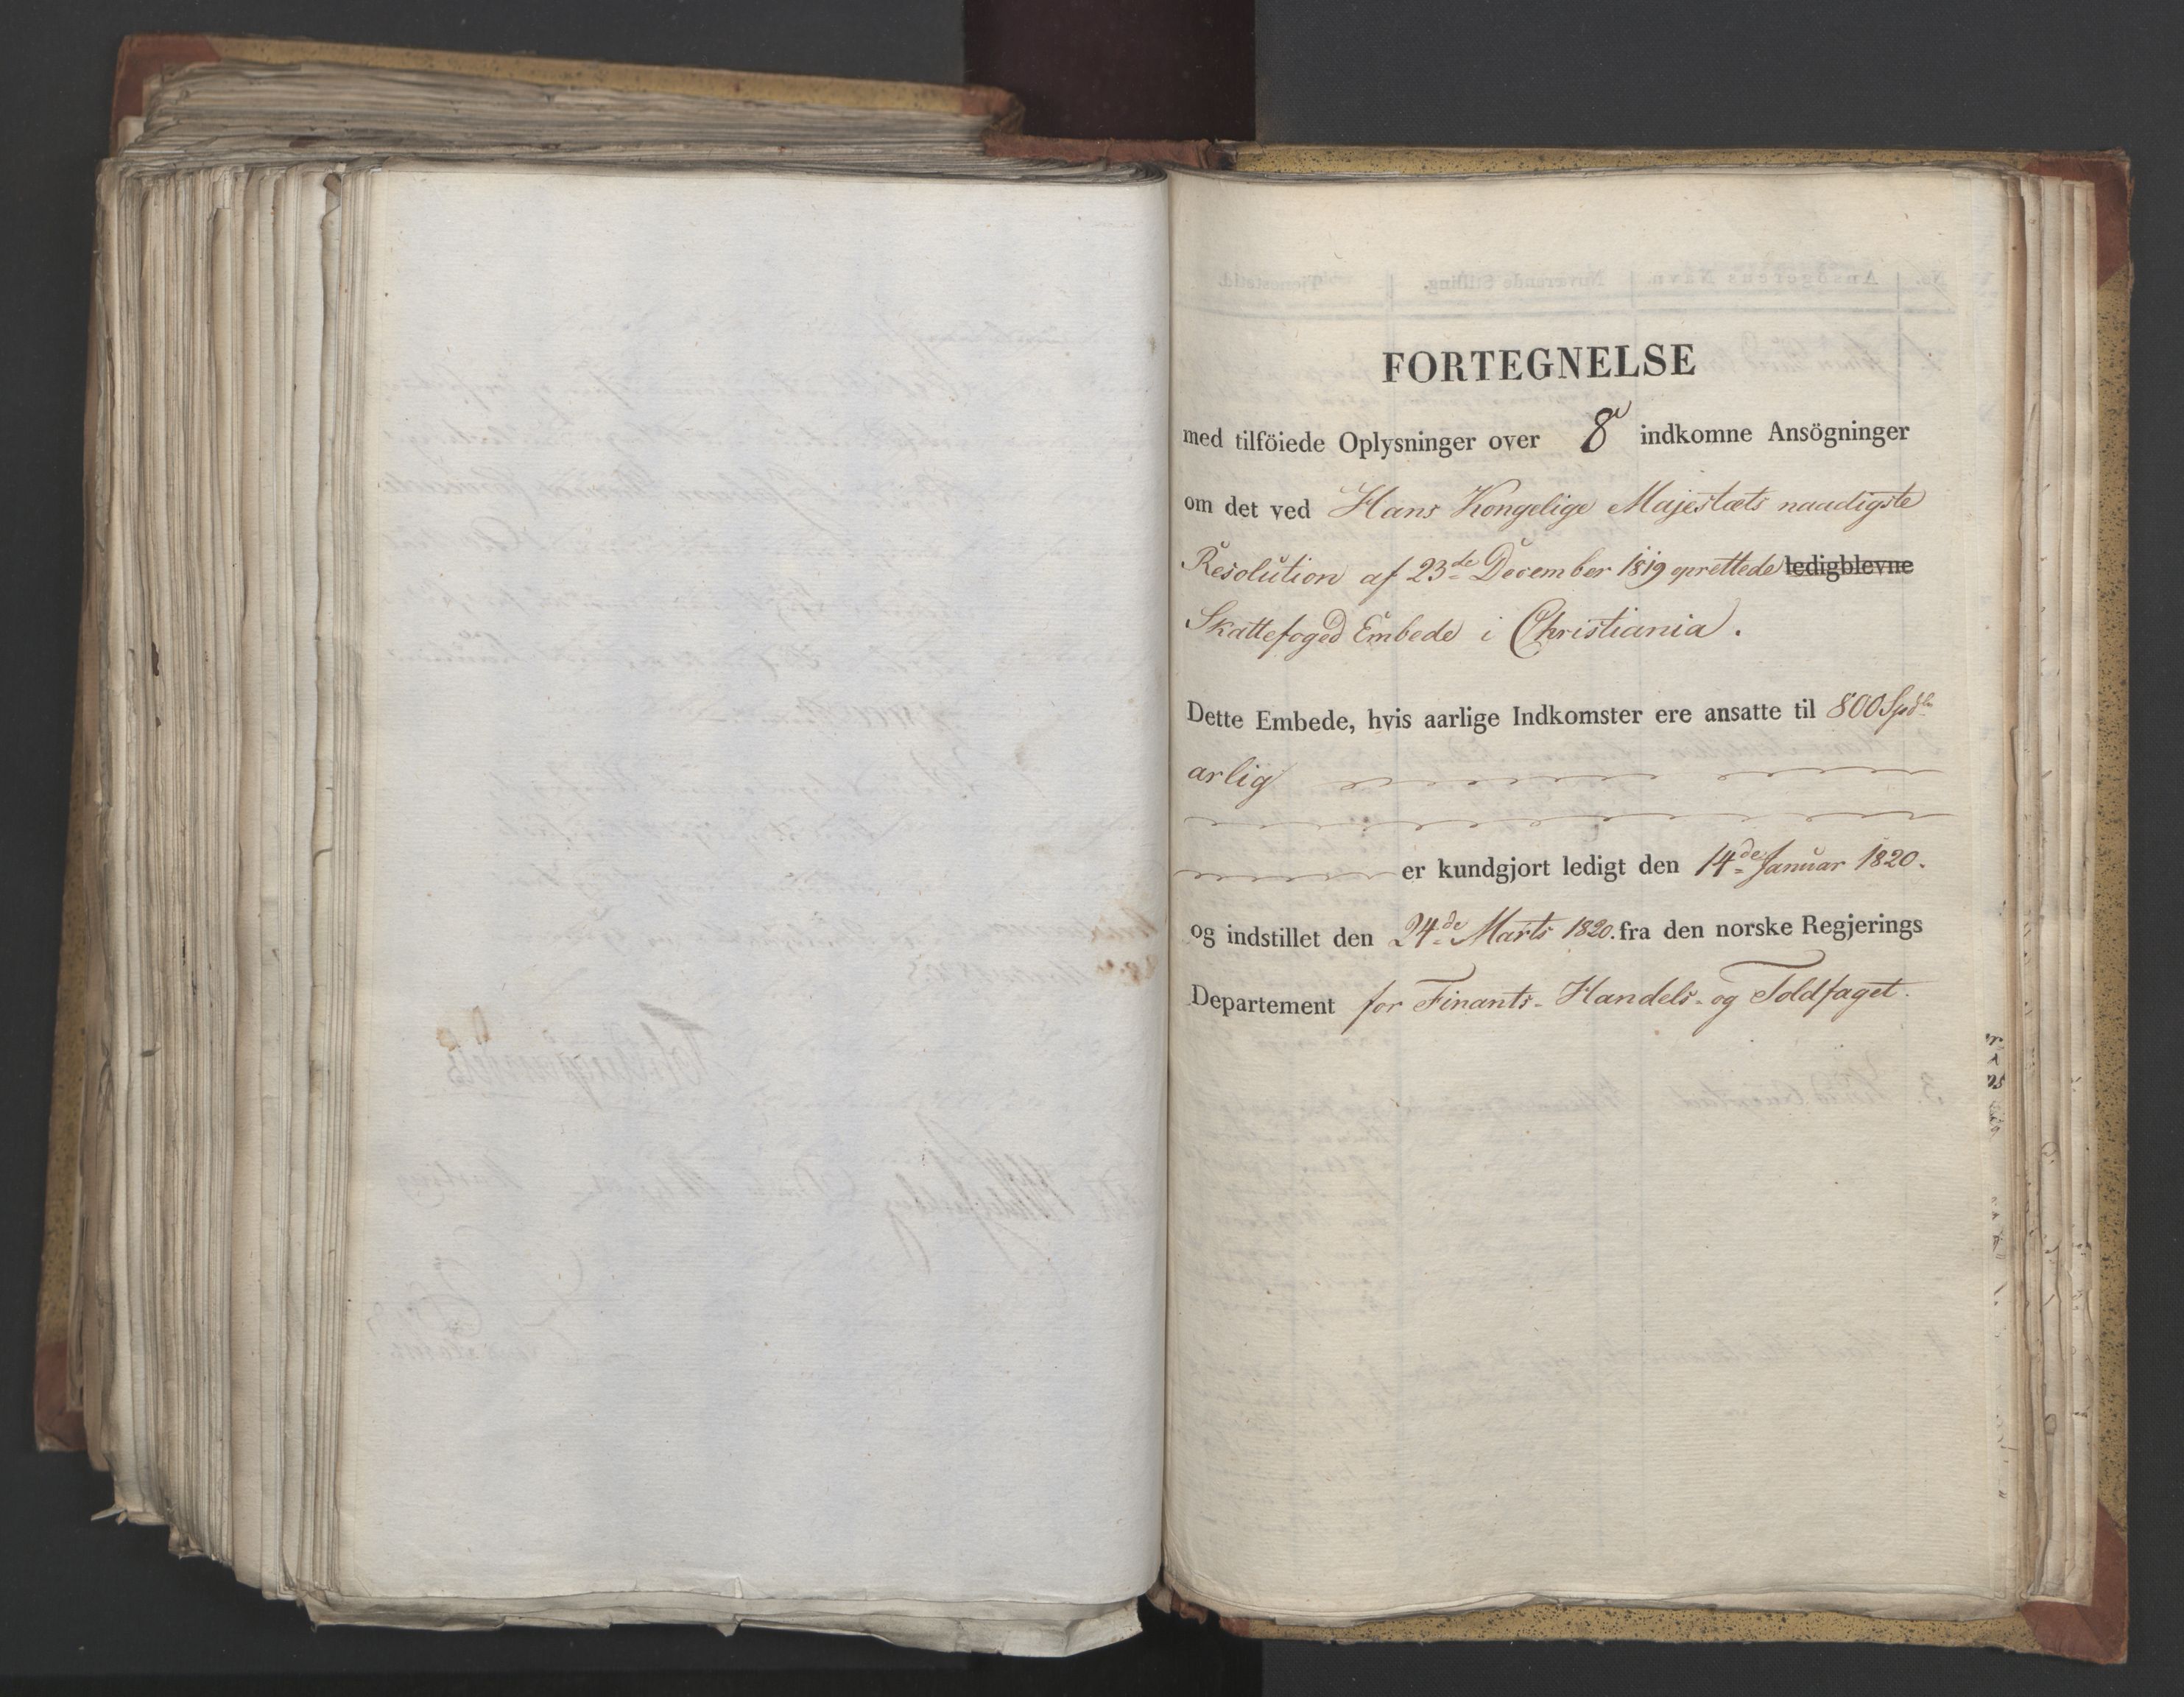 FORTEGNELSE
med tilföiede Oplysninger over 8 indkomne Ansögninger
om det ved Hans Kongelige Majestæts naadigste
Resolution af 23de December 1819 oprettede ledigblevne
Skattefoged Embede i Christiania.
Dette Embede, hvis aarlige Indkomster ere ansatte til 800 Spdlr
arlig
er kundgjort ledigt den 14de Januar 1820.
og indstillet den 24de Marts 1820. fra den norske Regjerings
Departement for Finants- Handels- og Toldfaget.